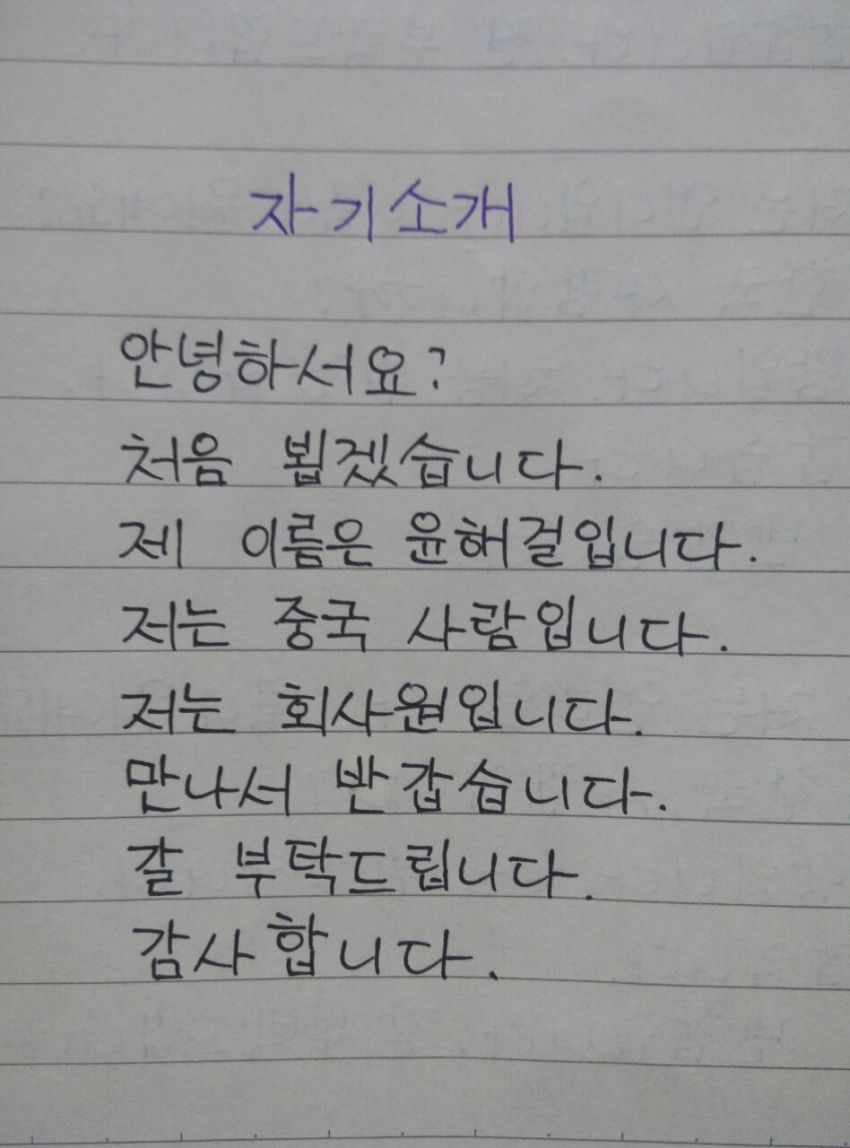 자기소개
안녕하서요?
처음 뵙겠습니다.
제 이름은 윤해걸입니다.
저는 중국 사람입니다.
저는 회사원입니다.
만나서 반갑습니다.
갈 부탁드립니다.
감사합니다.